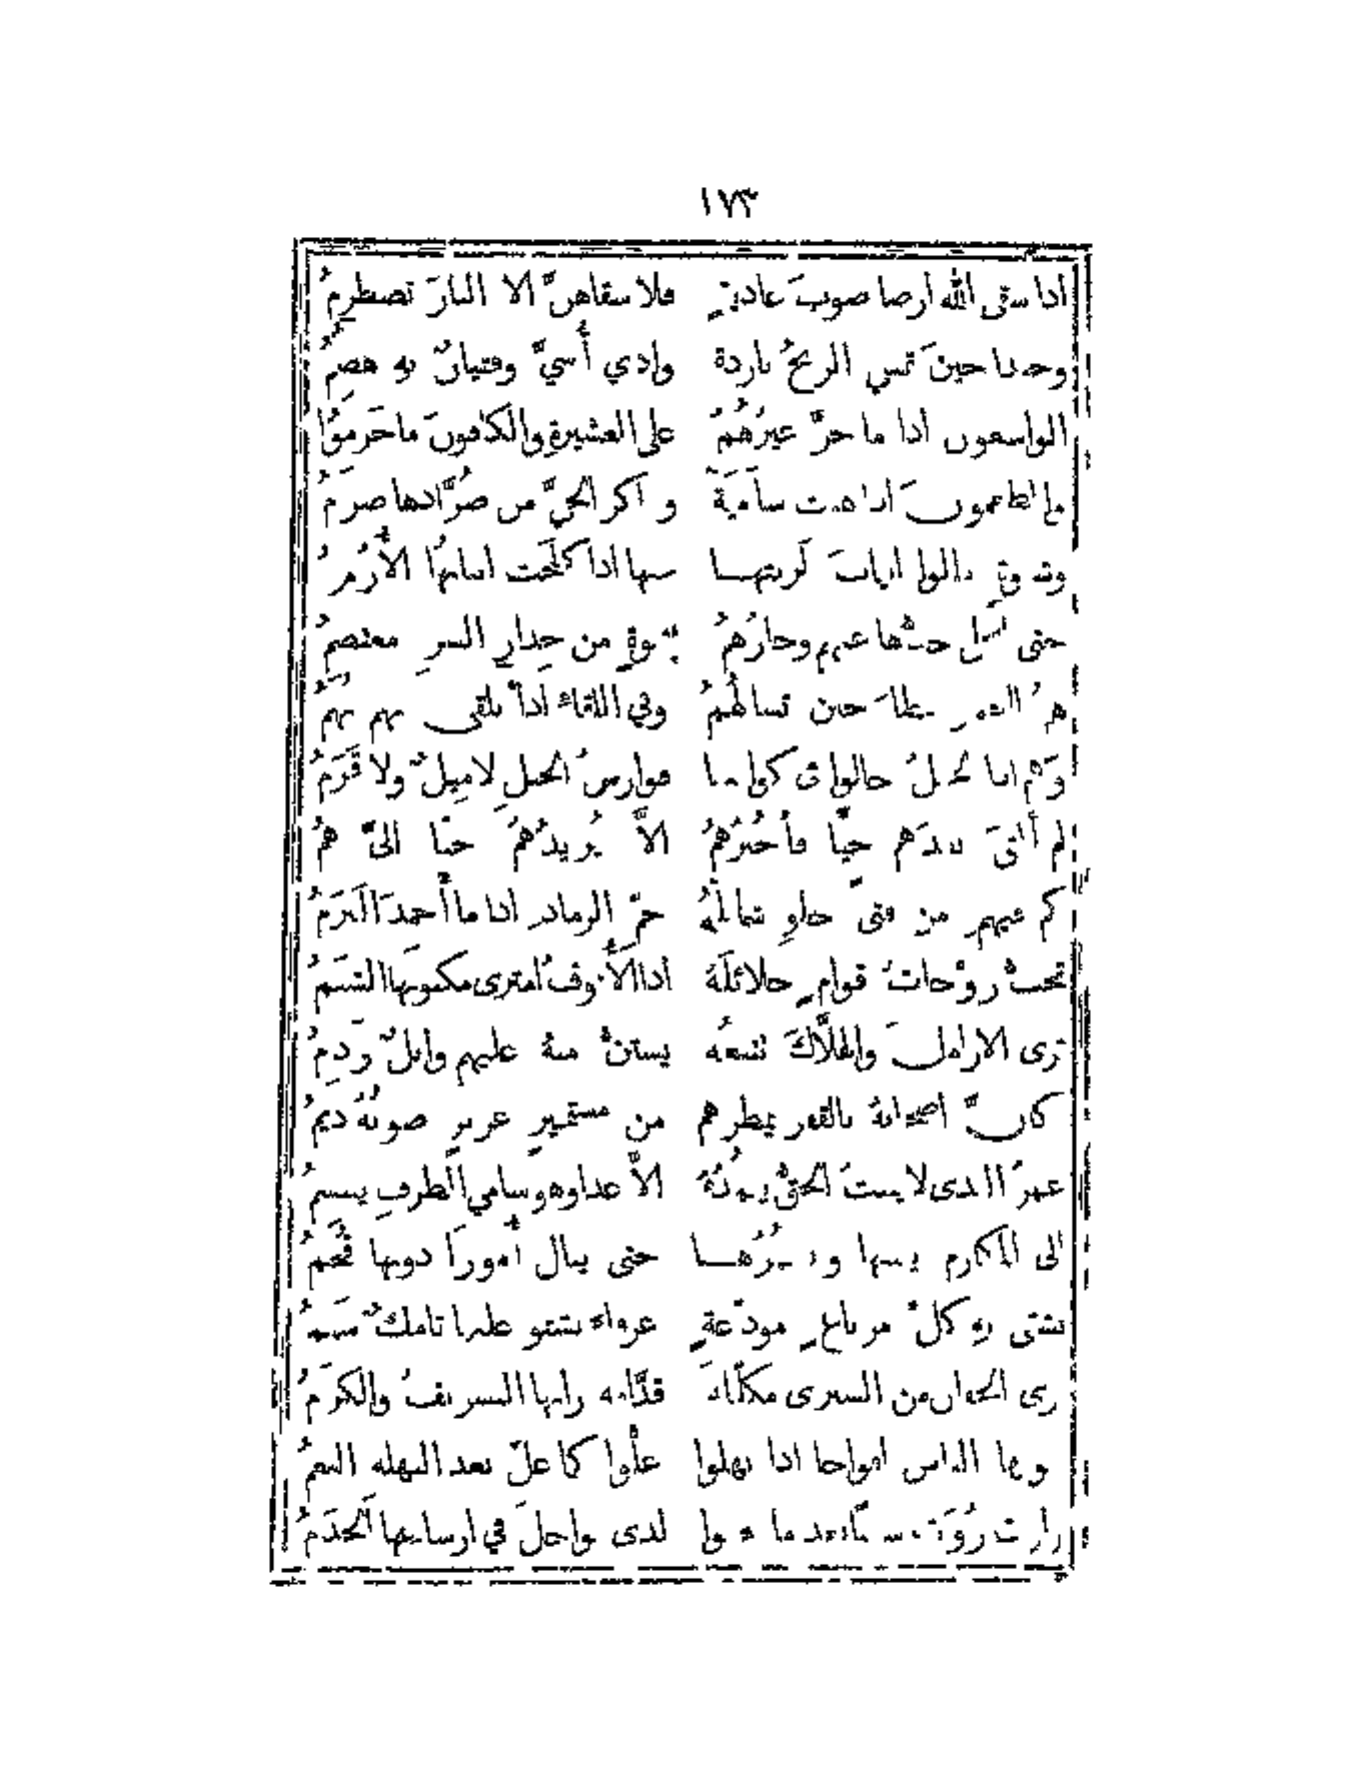 ١٧٣
اذا سقى الله أرضا صوبَ غاديةٍ فلا سقاهنَّ الا النارَ تضطرمُ
وحبذا حينَ تمسي الريحُ باردة وادي أُشيّ وفتيانٌ به هضمُ
الواسعون اذا ما جرَّ غيرُهُمُ على العشيرةِ والكافونَ ما جَرموُا
والمطعمونَ اذا هبت شآميَةً وباكر الحيَّ من صُرَّادها صِرَمُ
وشتوةٍ فللوا انيابَ لَزبتهـا عنها اذا كَلَحت انيابهُا الأزُمُ
حتى انجلى حدُّها عنهم وجارُهمُ بنجوةٍ من حِذارِ الشرِ معتصمُ
همُ البحور عطاءً حين تسألهُمُ وفي اللقاء اذا تلقى بهم بُهَمُ
وَهُم اذا الخيلُ حالوا في كواثبها فوارسُ الخيلِ لا مِيلٌ ولا قَزَمُ
لم أَلقَ بعدَهم حيًّا فأَخبُرُهُمُ الاَّ يُزيدُهُمُ حبًا اليَّ همُ
كم فيهم من فتىً حلوٍ شمائلُهُ جمّ الرماد اذا ما أَخمدَ البَرَمُ
تحبُّ زوْجاتُ قوامٍ حلائلَهُ اذا الأنوفُ امترى مكنونَها الشبَمُ
ترى الاراملَ والهلاَّكَ تتبعُه يستنُّ منهُ عليهم وابلٌ رَذِمُ
كأنَّ اصحابهُ بالقفر يمطرهم من مستحيرٍ غزيرٍ صوبُهُ دِيَمُ
غمرُ الندى لا يبيتُ الحقُّ يثمدُهُ الاَّ غدا وهو سامي الطرفِ يبتسمُ
الى المكارم يبنيها ويعمُرُهـا حتى ينال أُموراً دونها قُحَمُ
تشقى به كلُّ مرباعٍ مودَّعةٍ عرفاء يشتو عليها تامكٌ سَنِمُ
ترى الجفان من الشيزى مكلَّلةً قدَّامه زانها التشريفُ والكَرَمُ
ينوبها الناس افواجا اذا نهلوا علُّوا كما علّ بعد النهله النعمُ
لدى نواحلَ في ارساغها الخدَمُ